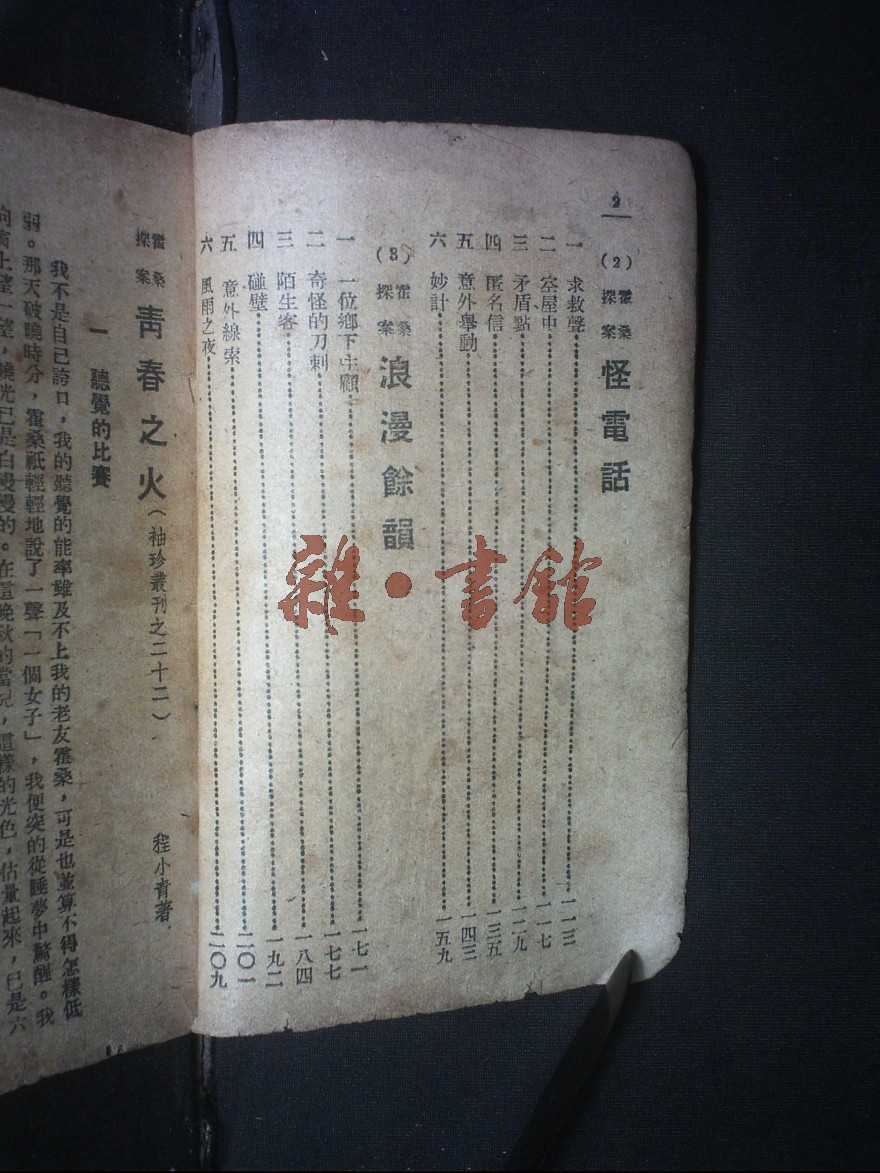 2
(2) 霍桑探案 怪電話
一 求救聲 一一三
二 空屋中 一一七
三 矛盾點 一二九
四 匿名信 一三五
五 意外舉動 一四三
六 妙計 一五九
(3) 霍桑探案 浪漫餘韻
一 一位鄉下主顧 一七一
二 奇怪的刀刺 一七七
三 陌生客 一八四
四 碰壁 一九二
五 意外線索 二〇一
六 風雨之夜 二〇九
雜·書館
霍桑探案 青春之火(袖珍叢刊之二十二) 程小青著
一 聽覺的比賽
我不是自己誇口,我的聽覺的能率雖及不上我的老友霍桑,可是也並算不得怎樣低
弱。那天破曉時分,霍桑祇輕輕地說了一聲「一個女子」,我便突的從睡夢中驚醒。我
向窗上望一望,曉光已是白漫漫的。在這晚秋的當兒,這樣的光色,估量起來,已是六